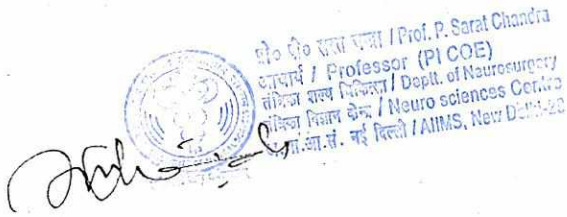 प्रो० पी० सरत चन्द्रा / Prof. P. Sarat Chandra
आचार्य / Professor (PI COE)
तंत्रिका शल्य चिकित्सा / Deptt. of Neurosurgery
तंत्रिका विज्ञान केन्द्र / Neuro sciences Centre
अ.भा.आ.सं. नई दिल्ली / AIIMS, New Delhi-29